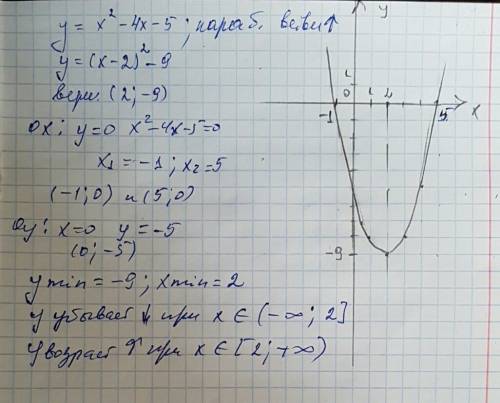 y = x² - 4x - 5 ; параб. ветви↑
y = (x-2)² - 9
верш. (2; -9)
Ox: y=0 x² - 4x - 5 = 0
x₁ = -1 ; x₂ = 5
(-1; 0) и (5; 0)
Oy: x=0 y = -5
(0; -5)
y min = -9 ; x min = 2
y убывает ↓ при x ∈ (-∞; 2]
y возраст ↑ при x ∈ [2; +∞)
y
1
0 1 2
-1 5 x
-9